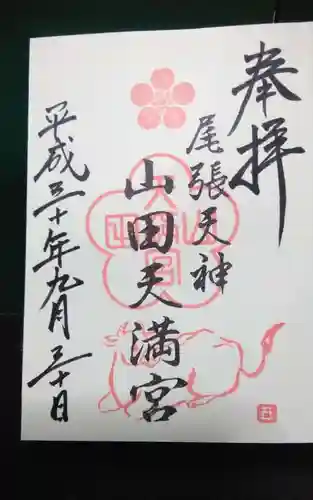 奉拝
尾張天神
山田天満宮
平成三十年九月三十日